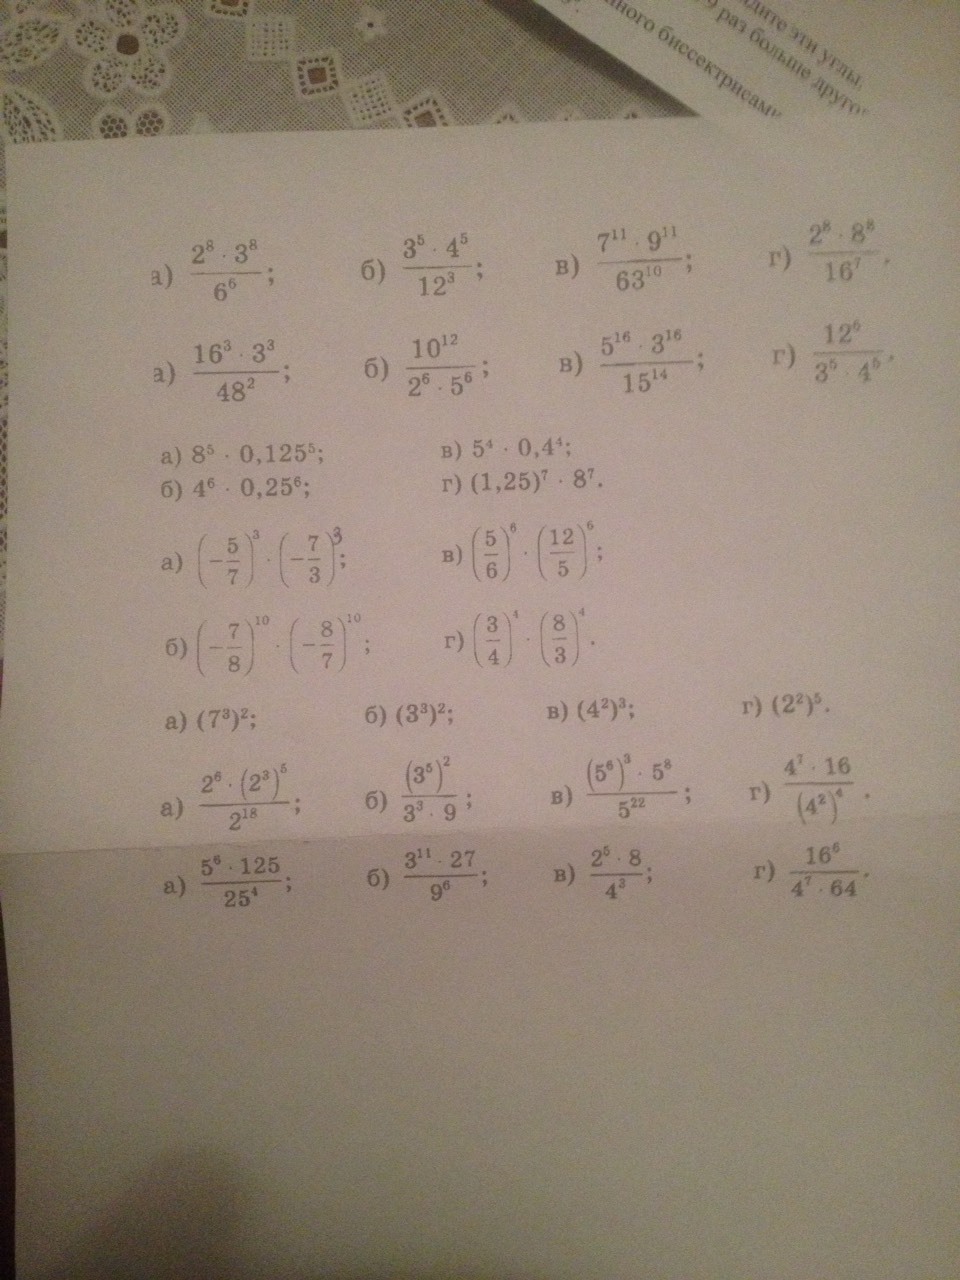 дите эти углы,
9 раз больше друго
ного биссектрисами
а) \frac{2^8 · 3^8}{6^6}; б) \frac{3^5 · 4^5}{12^3}; в) \frac{7^{11} · 9^{11}}{63^{10}}; г) \frac{2^8 · 8^8}{16^7}.
а) \frac{16^3 · 3^3}{48^2}; б) \frac{10^{12}}{2^6 · 5^6}; в) \frac{5^{16} · 3^{16}}{15^{14}}; г) \frac{12^6}{3^5 · 4^5}.
а) 8^5 · 0,125^5; в) 5^4 · 0,4^4;
б) 4^6 · 0,25^6; г) (1,25)^7 · 8^7.
а) (-\frac{5}{7})^3 · (-\frac{7}{3})^3; в) (\frac{5}{6})^6 · (\frac{12}{5})^6;
б) (-\frac{7}{8})^{10} · (-\frac{8}{7})^{10}; г) (\frac{3}{4})^4 · (\frac{8}{3})^4.
а) (7^3)^2; б) (3^3)^2; в) (4^2)^3; г) (2^2)^5.
а) \frac{2^6 · (2^3)^5}{2^{18}}; б) \frac{(3^5)^2}{3^3 · 9}; в) \frac{(5^6)^3 · 5^8}{5^{22}}; г) \frac{4^7 · 16}{(4^2)^4}.
а) \frac{5^6 · 125}{25^4}; б) \frac{3^{11} · 27}{9^6}; в) \frac{2^5 · 8}{4^3}; г) \frac{16^6}{4^7 · 64}.